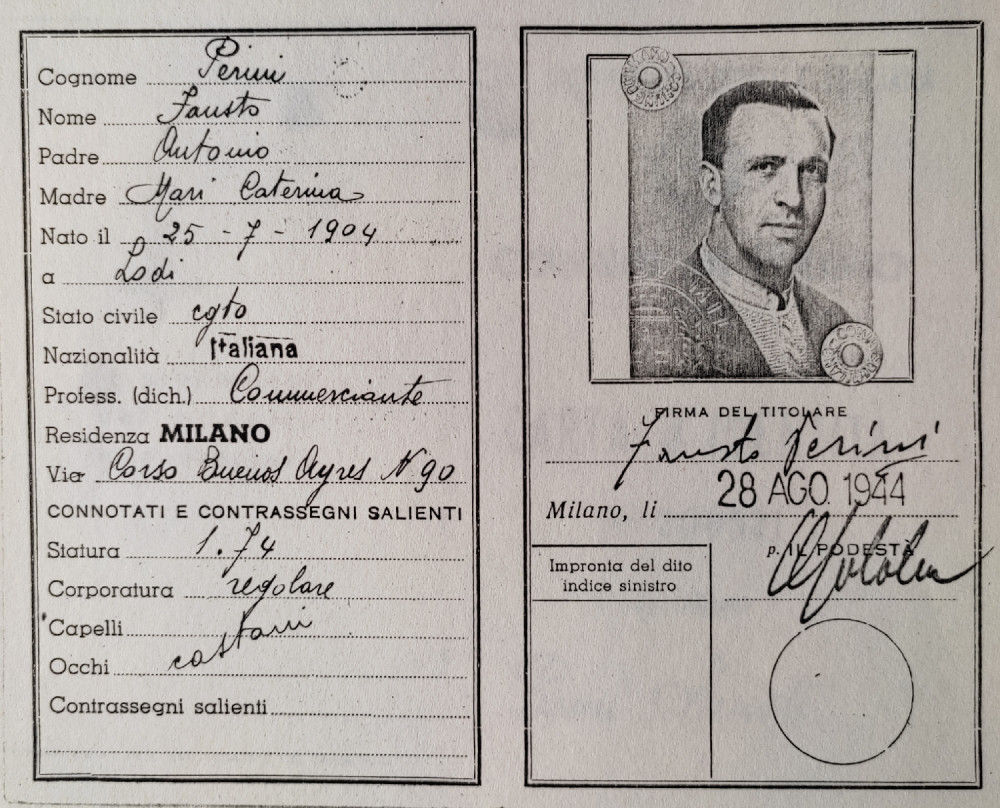 Cognome Perini
Nome Fausto
Padre Antonio
Madre Mari Caterina
Nato il 25 - 7 - 1904
a Lodi
Stato civile cgto
Nazionalità Italiana
Profess. (dich.) Commerciante
Residenza MILANO
Via Corso Buenos Ayres N 90
CONNOTATI E CONTRASSEGNI SALIENTI
Statura 1.74
Corporatura regolare
Capelli
Occhi castani
Contrassegni salienti
FIRMA DEL TITOLARE
Fausto Perini
Milano, li 28 AGO. 1944
p. IL PODESTÀ
Impronta del dito
indice sinistro